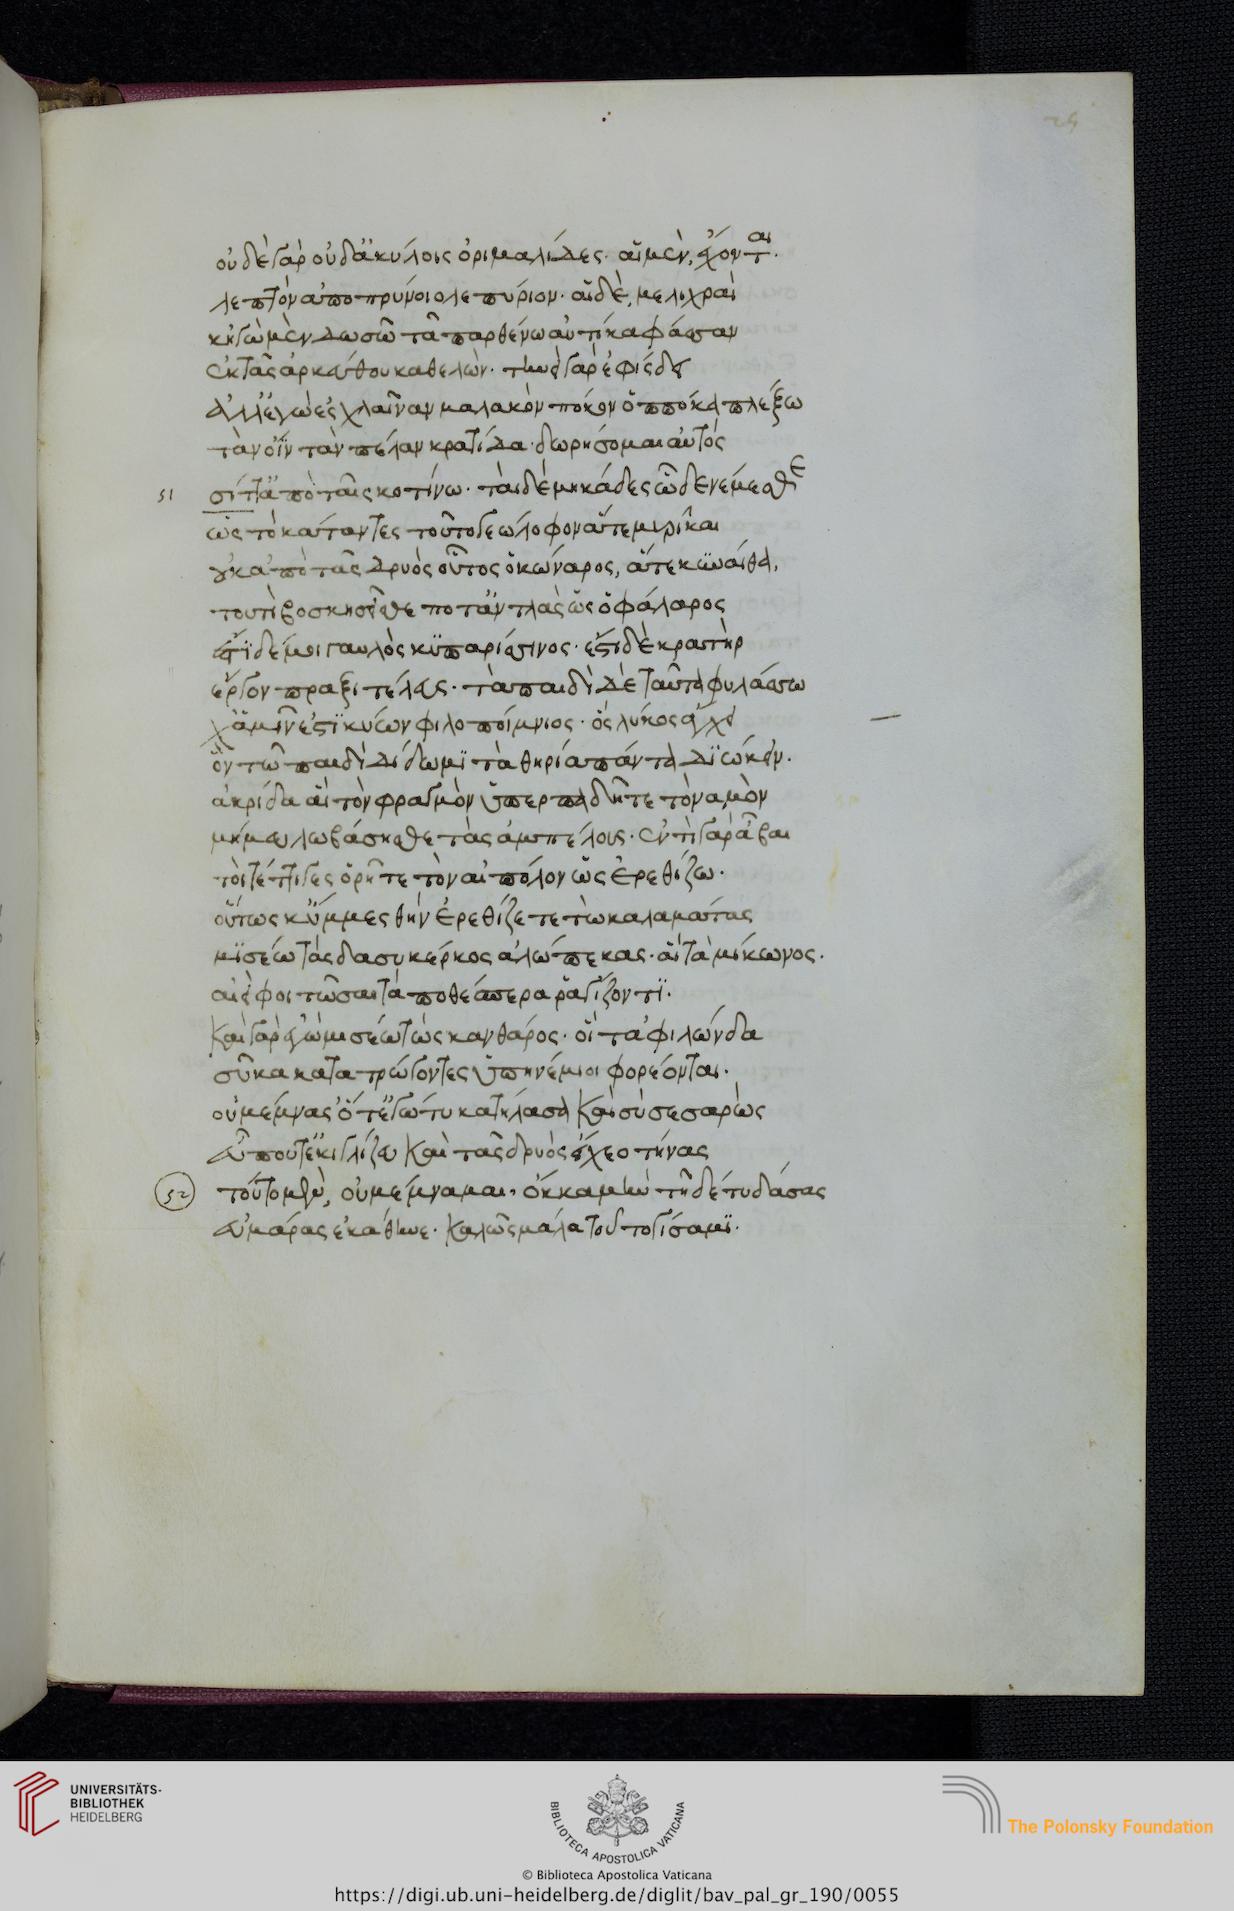 24
οὐδὲ γὰρ οὐδ' ἄκυλοις ὀριμαλίδες. αἳ μὲν, ἔχονται.
λεπτὸν ἀπο πρίνοιο λεπύριον. αἳ δὲ, μελιχραὶ
κἠγὼ μὲν δωσῶ τᾶ παρθένω αὐτίκα φάσσαν
ἐκ τᾶς ἀρκεύθου καθελών. τηνεὶ γὰρ ἐφίσδει
ἀλλ' ἐγὼ ἐς χλαῖναν μαλακὸν πόκον ὁππόκα πλέξω
τὰν οἶν τὰν πέλαν κρατίδα. δωρήσομαι αὐτός
51 σίττ' ἄπὸ ταῖς κοτίνω. ταὶ δὲ μηκάδες ὧδε νέμεσθε
ὡς τὸ κάταντες τοῦτο γεώλοφον αἵτε μυρῖκαι
οὐκ ἀπὸ τᾶς δρυὸς οὗτος ὁ κώναρος, ἅτε κιναίθα,
τουτὶ βοσκησεῖσθε ποτ' ἄντλας ὡς ὁ φάλαρος
ἐστὶ δέ μοι γαυλὸς κυπαρίσσινος. ἐστὶ δὲ κρατὴρ
ἔργον πραξιτέλευς. τᾶ παιδὶ δὲ ταῦτα φυλάσσω
χ' ἁμῖν ἐστὶ κύων φιλοποίμνιος. ὃς λύκος ἄγχει
ὃν τῶ παιδὶ δίδωμι τὰ θηρία πάντα διώκειν.
ἀκρίδα αἳ τὸν φραγμὸν ὑπερπαδῆτε τὸν ἁμὸν
μή μευ λωβάσησθε τὰς ἀμπέλους. ἐντὶ γὰρ ἇβαι
τοὶ τέττιγες ὁρῆτε τὸν αἰπόλον ὡς ἐρεθίζω.
οὕτως κ' ὔμμες θὴν ἐρεθίζετε τὼ καλαμαίτας
μισέω τὰς δασυκέρκος ἀλώπεκας. αἳ τὰ μίκωνος.
αἰεὶ φοιτῶσαι τὰ ποθέσπερα ῥαγίζοντι.
καὶ γὰρ ἐγὼ μισέω τὼς κανθάρος. οἳ τὰ φιλώνδα
σῦκα κατατρώγοντες ὑπηνέμιοι φορέονται.
οὐ μέμνας ὅτ' ἔγώ τυ κατήλασα καὶ σὺ σεσαρὼς
εὖ ποτ' ἐκιγλίζευ καὶ τᾶς δρυὸς εἴχεο τήνας
52 τοῦτο μὲν, οὐ μέμναμαι, ὅκκα μὲν τῆδέ τυ δάσας
εὐμάρας ἐκάθηρε. καλῶς μάλα τοῦτο γ' ἴσαμι.
UNIVERSITÄTS-
BIBLIOTHEK
HEIDELBERG
BIBLIOTECA APOSTOLICA VATICANA
The Polonsky Foundation
© Biblioteca Apostolica Vaticana
https://digi.ub.uni-heidelberg.de/diglit/bav_pal_gr_190/0055